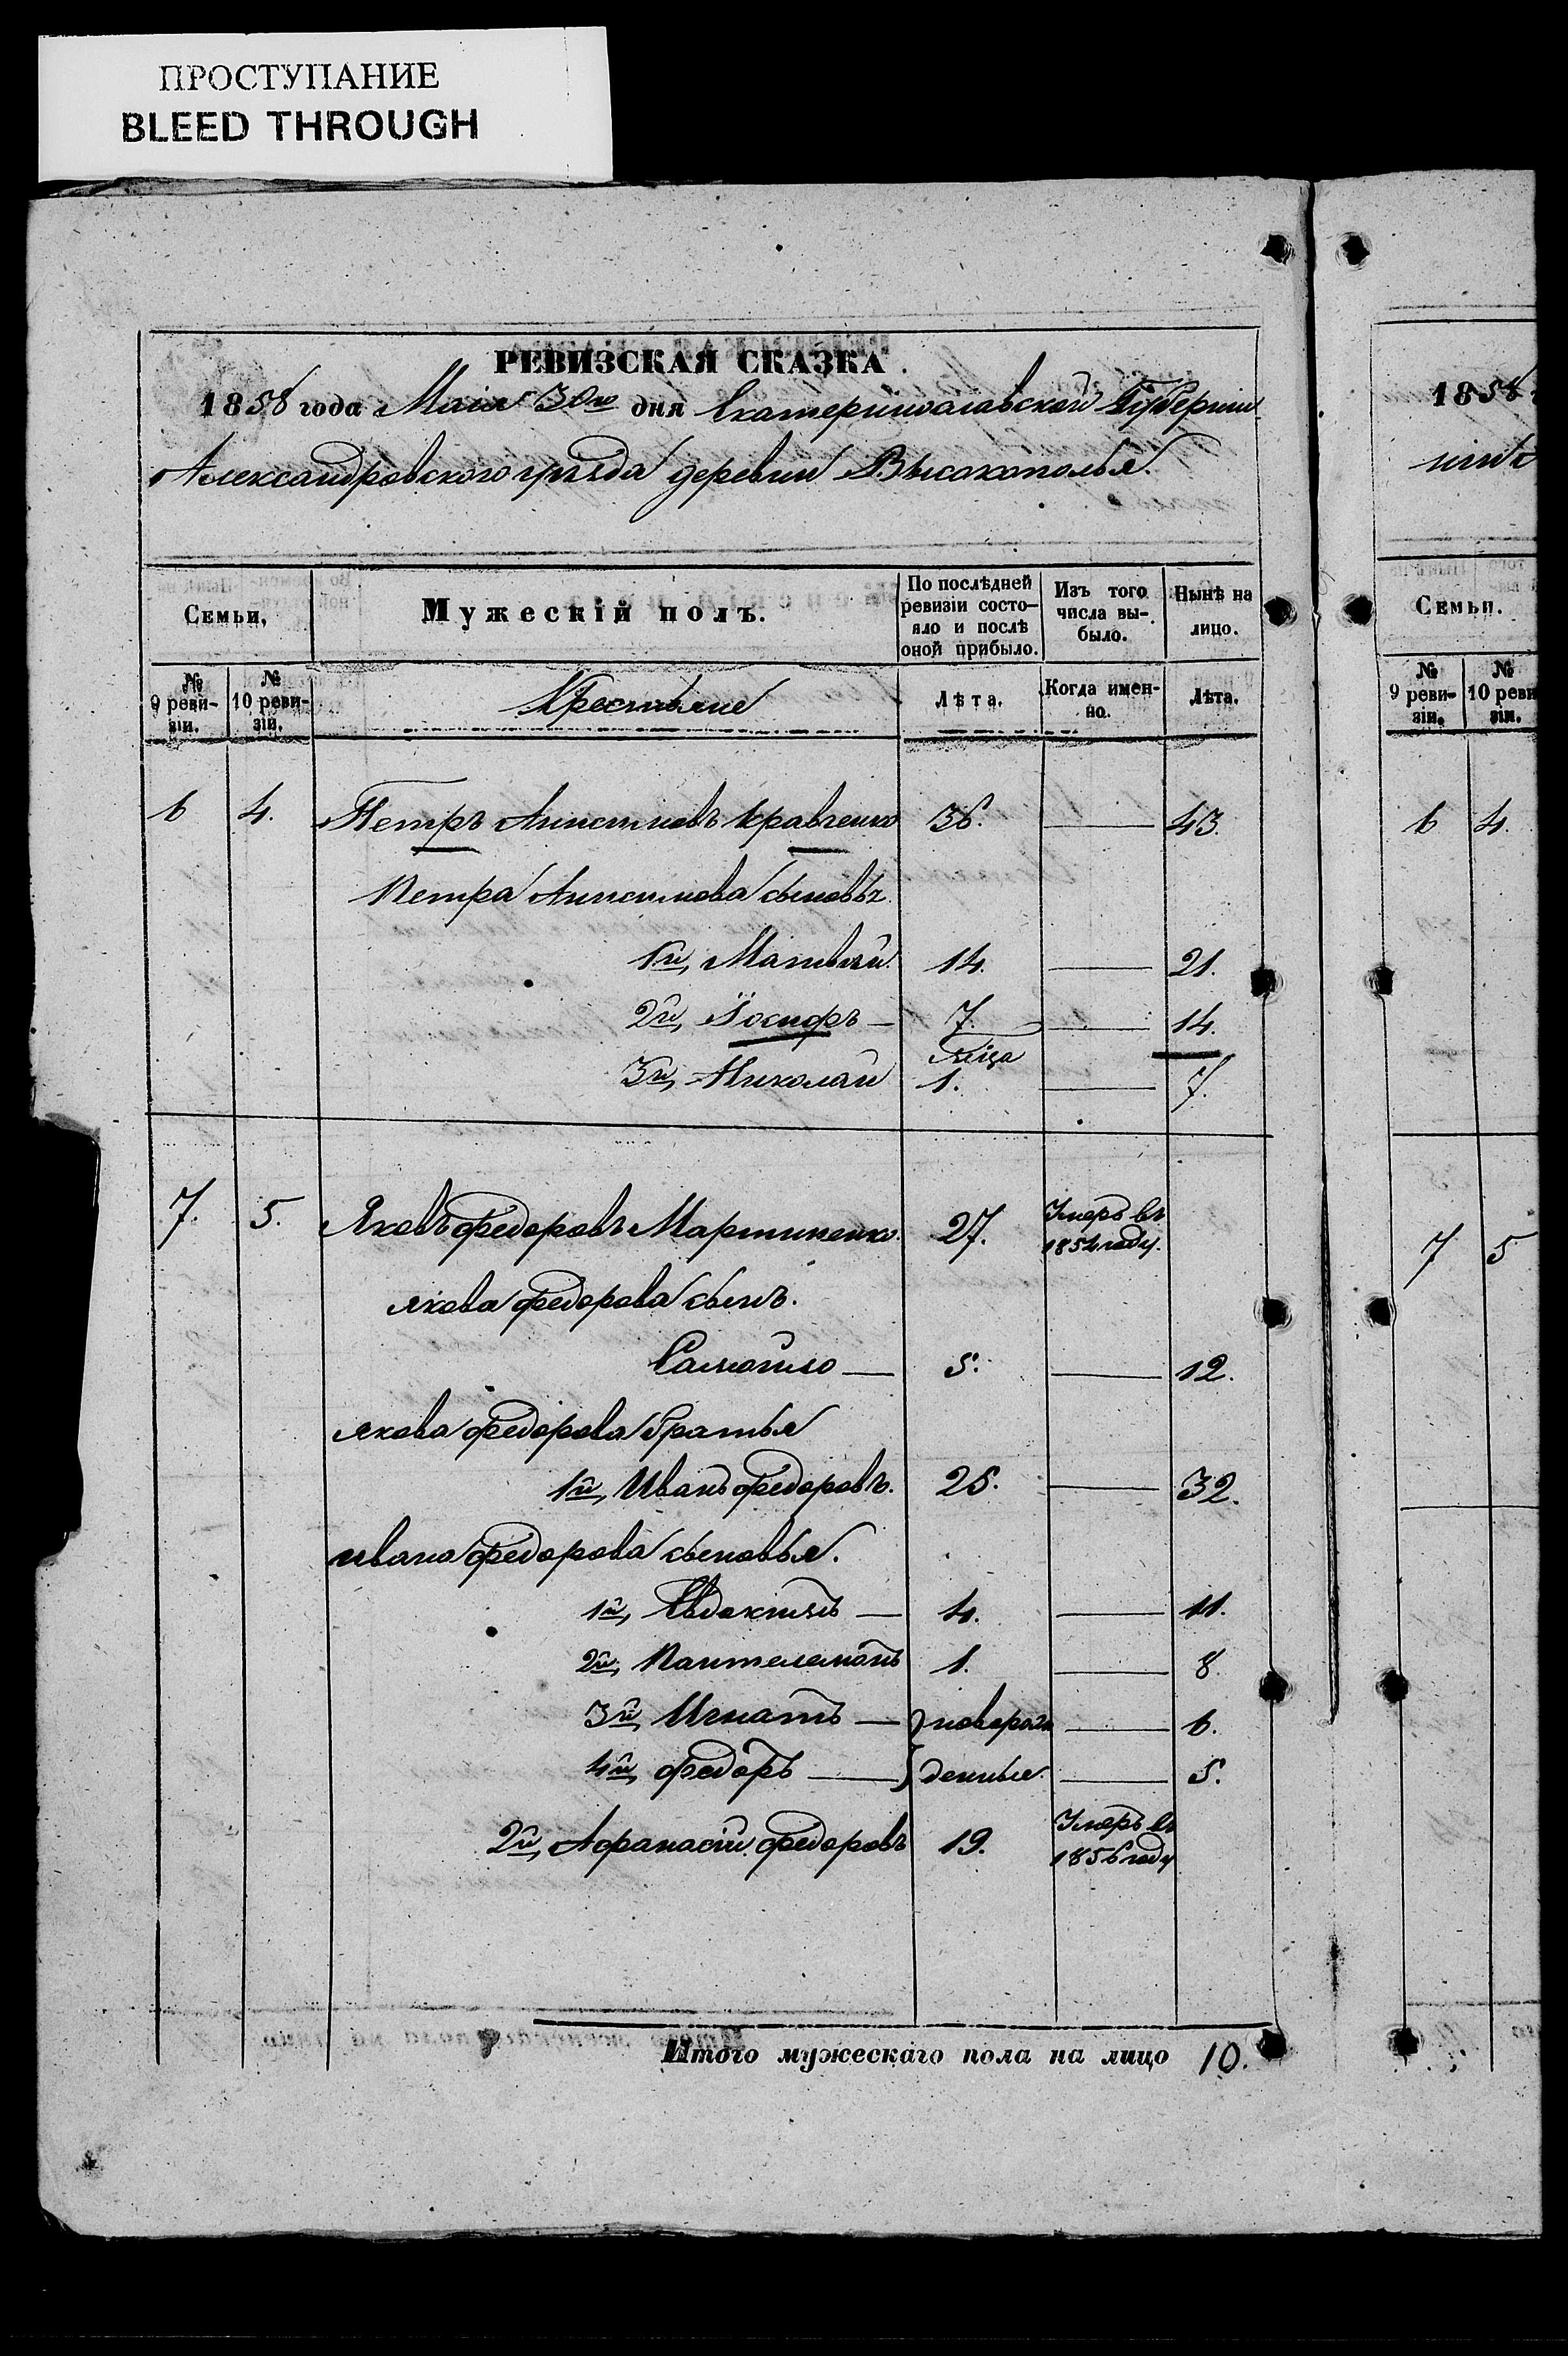 ПРОСТУПАНИЕ
BLEED THROUGH
РЕВИЗСКАЯ СКАЗКА.
1858 года Маія 30го дня Екатеринославской Губерніи
Александровского уѣзда деревни Высокополья.
Семьи, Мужескій полъ. По послѣдней ревизіи состояло и послѣ оной прибыло. Изъ того числа выбыло. Нынѣ на лицо.
№ 9 ревизіи. № 10 ревизіи. Крестьяне Лѣта. Когда именно. Лѣта.
6 4. Петръ Анисимовъ Кравченко 36. — 43.
Петра Анисимова сыновья
1й, Матвѣй. 14. — 21.
2й, Іосифъ — 7. — 14.
3й, Николай 1. — 7.
7. 5. Яковъ Федоровъ Мартиненко. 27. Умеръ въ 1854 году.
Якова Федорова сынъ.
Самойло — 5. — 12.
Якова Федорова братья
1й, Иванъ Федоровъ. 25. — 32.
Ивана Федорова сыновья.
1й, Евдокимъ — 4. — 11.
2й, Пантелемонъ 1. — 8.
3й, Игнатъ — } новорож — 6.
4й, Федоръ — } денные. — 5.
2й, Афанасій Федоровъ 19. Умеръ въ 1856 году
Итого мужескаго пола на лицо 10.
1858
Семьи.
№ 9 ревизіи. № 10 реви зіи.
6 4.
7 5